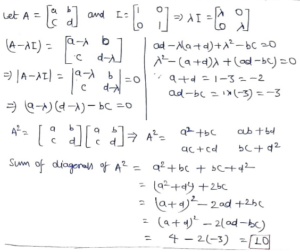 Let A = [a b; c d] and I = [1 0; 0 1] ⇒ λI = [λ 0; 0 λ]
(A-λI) = [a-λ b; c d-λ]
⇒ |A-λI| = |a-λ b; c d-λ| = 0
⇒ (a-λ)(d-λ) - bc = 0
ad - λ(a+d) + λ² - bc = 0
λ² - (a+d)λ + (ad-bc) = 0
∵ a+d = 1-3 = -2
ad-bc = 1×(-3) = -3
A² = [a b; c d] [a b; c d] ⇒ A² = a²+bc ab+bd
ac+cd bc+d²
Sum of diagonals of A² = a²+bc+bc+d²
= (a²+d²)+2bc
= (a+d)² - 2ad + 2bc
= (a+d)² - 2(ad-bc)
= 4 - 2(-3) = 10